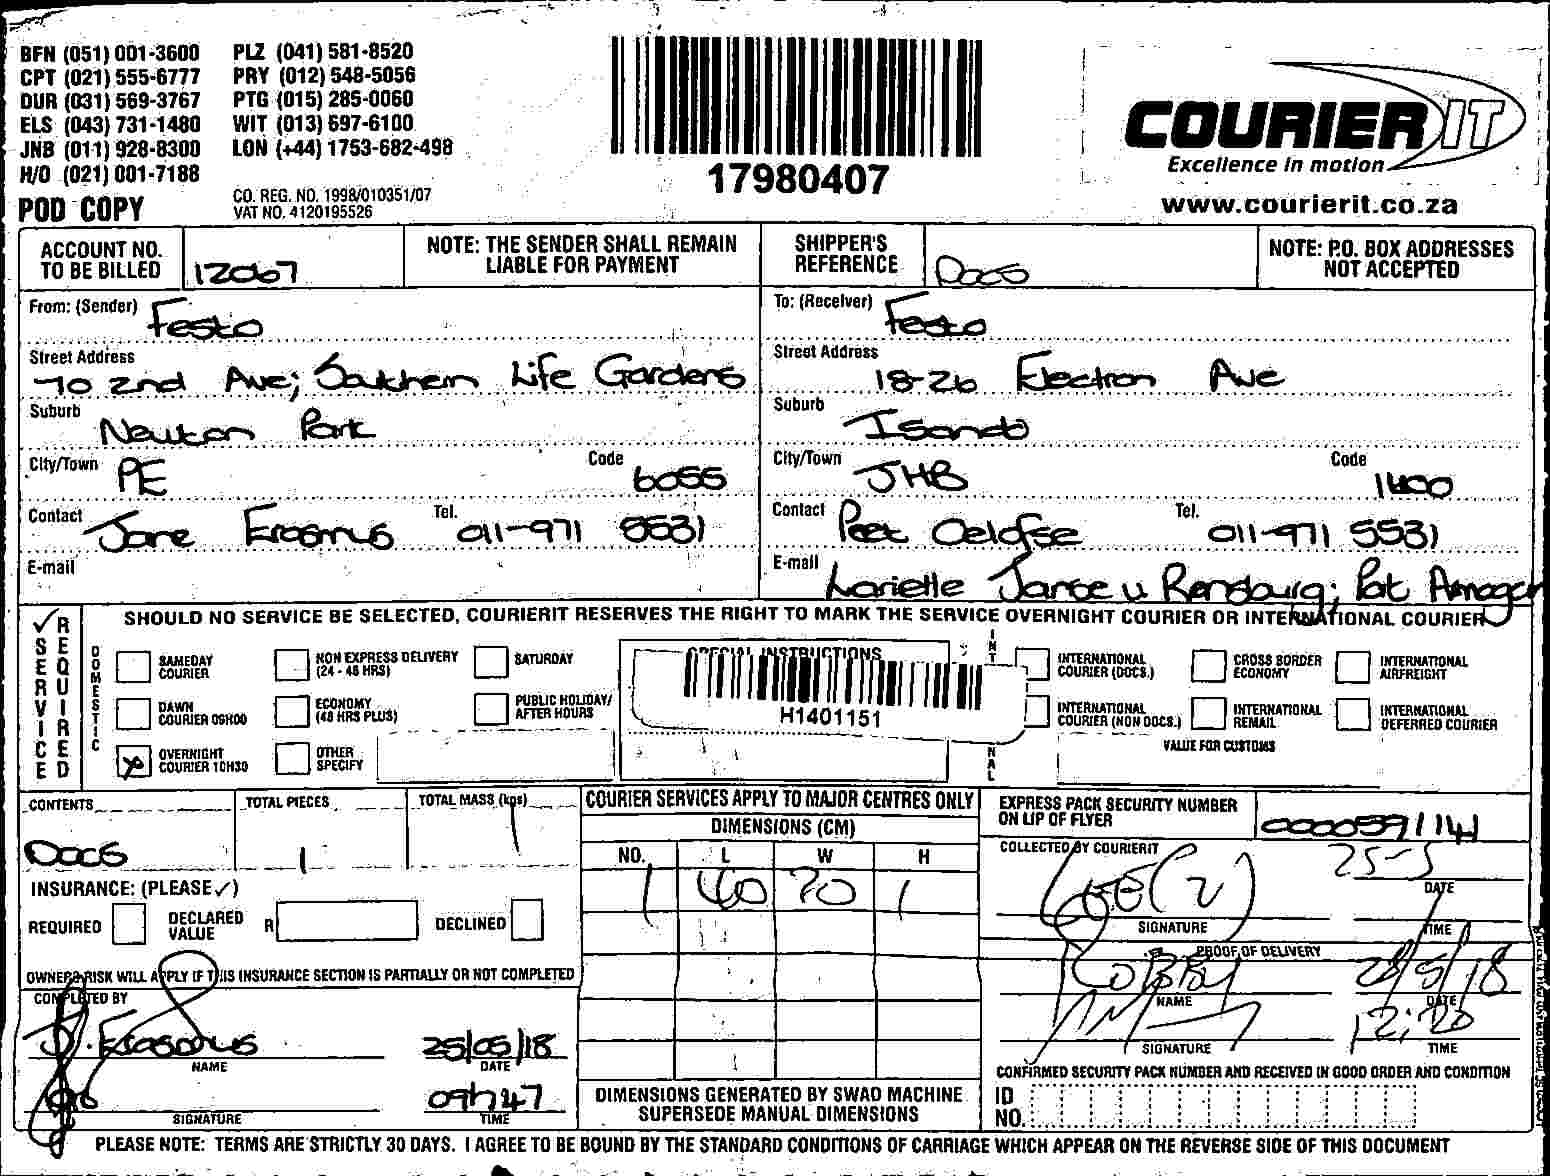 BFN (051) 001-3600 PLZ (041) 581-8520
CPT (021) 555-6777 PRY (012) 548-5056
DUR (031) 569-3767 PTG (015) 285-0060
ELS (043) 731-1480 WIT (013) 697-6100
JNB (011) 928-8300 LON (+44) 1753-682-498
H/O (021) 001-7188
CO. REG. NO. 1998/010351/07
POD COPY VAT NO. 4120195526
17980407
COURIER IT
Excellence in motion
www.courierit.co.za
ACCOUNT NO. TO BE BILLED 12067
NOTE: THE SENDER SHALL REMAIN LIABLE FOR PAYMENT
SHIPPER'S REFERENCE Docs
NOTE: P.O. BOX ADDRESSES NOT ACCEPTED
From: (Sender) Festo
Street Address 70 2nd Ave; Southern Life Gardens
Suburb Newton Park
City/Town PE Code 6055
Contact Jane Erasmus Tel. 011-971 5531
E-mail
To: (Receiver) Festo
Street Address 18-26 Electron Ave
Suburb Isando
City/Town JHB Code 1400
Contact Peet Oelofse Tel. 011-971 5531
E-mail Lorielle Janse v Rensburg; Pat
SHOULD NO SERVICE BE SELECTED, COURIERIT RESERVES THE RIGHT TO MARK THE SERVICE OVERNIGHT COURIER OR INTERNATIONAL COURIER
✓ SERVICE REQUIRED
DOMESTIC
SAMEDAY COURIER
NON EXPRESS DELIVERY (24 - 48 HRS)
SATURDAY
DAWN COURIER 09H00
ECONOMY (48 HRS PLUS)
PUBLIC HOLIDAY/ AFTER HOURS
OVERNIGHT COURIER 10H30
OTHER SPECIFY
SPECIAL INSTRUCTIONS
H1401151
INTERNATIONAL COURIER (DOCS.)
CROSS BORDER ECONOMY
INTERNATIONAL AIRFREIGHT
INTERNATIONAL COURIER (NON DOCS.)
INTERNATIONAL REMAIL
INTERNATIONAL DEFERRED COURIER
VALUE FOR CUSTOMS
CONTENTS Docs
TOTAL PIECES 1
TOTAL MASS (kgs) 1
INSURANCE: (PLEASE ✓)
REQUIRED DECLARED VALUE R DECLINED
OWNERS RISK WILL APPLY IF THIS INSURANCE SECTION IS PARTIALLY OR NOT COMPLETED
COMPLETED BY
J. Erasmus 25/05/18
NAME DATE
09h47
SIGNATURE TIME
COURIER SERVICES APPLY TO MAJOR CENTRES ONLY
DIMENSIONS (CM)
NO. L W H
1 40 70 1
DIMENSIONS GENERATED BY SWAD MACHINE SUPERSEDE MANUAL DIMENSIONS
EXPRESS PACK SECURITY NUMBER ON LIP OF FLYER
COLLECTED BY COURIERIT
25-5
DATE
SIGNATURE TIME
PROOF OF DELIVERY
28/5/18
NAME DATE
12:20
SIGNATURE TIME
CONFIRMED SECURITY PACK NUMBER AND RECEIVED IN GOOD ORDER AND CONDITION
ID NO.
PLEASE NOTE: TERMS ARE STRICTLY 30 DAYS. I AGREE TO BE BOUND BY THE STANDARD CONDITIONS OF CARRIAGE WHICH APPEAR ON THE REVERSE SIDE OF THIS DOCUMENT